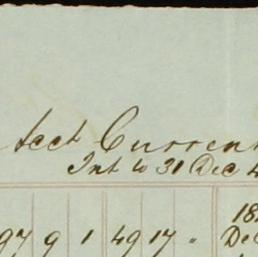 Acct Current
Int to 31 Dec 4
18
97 9 1 49 17 " De